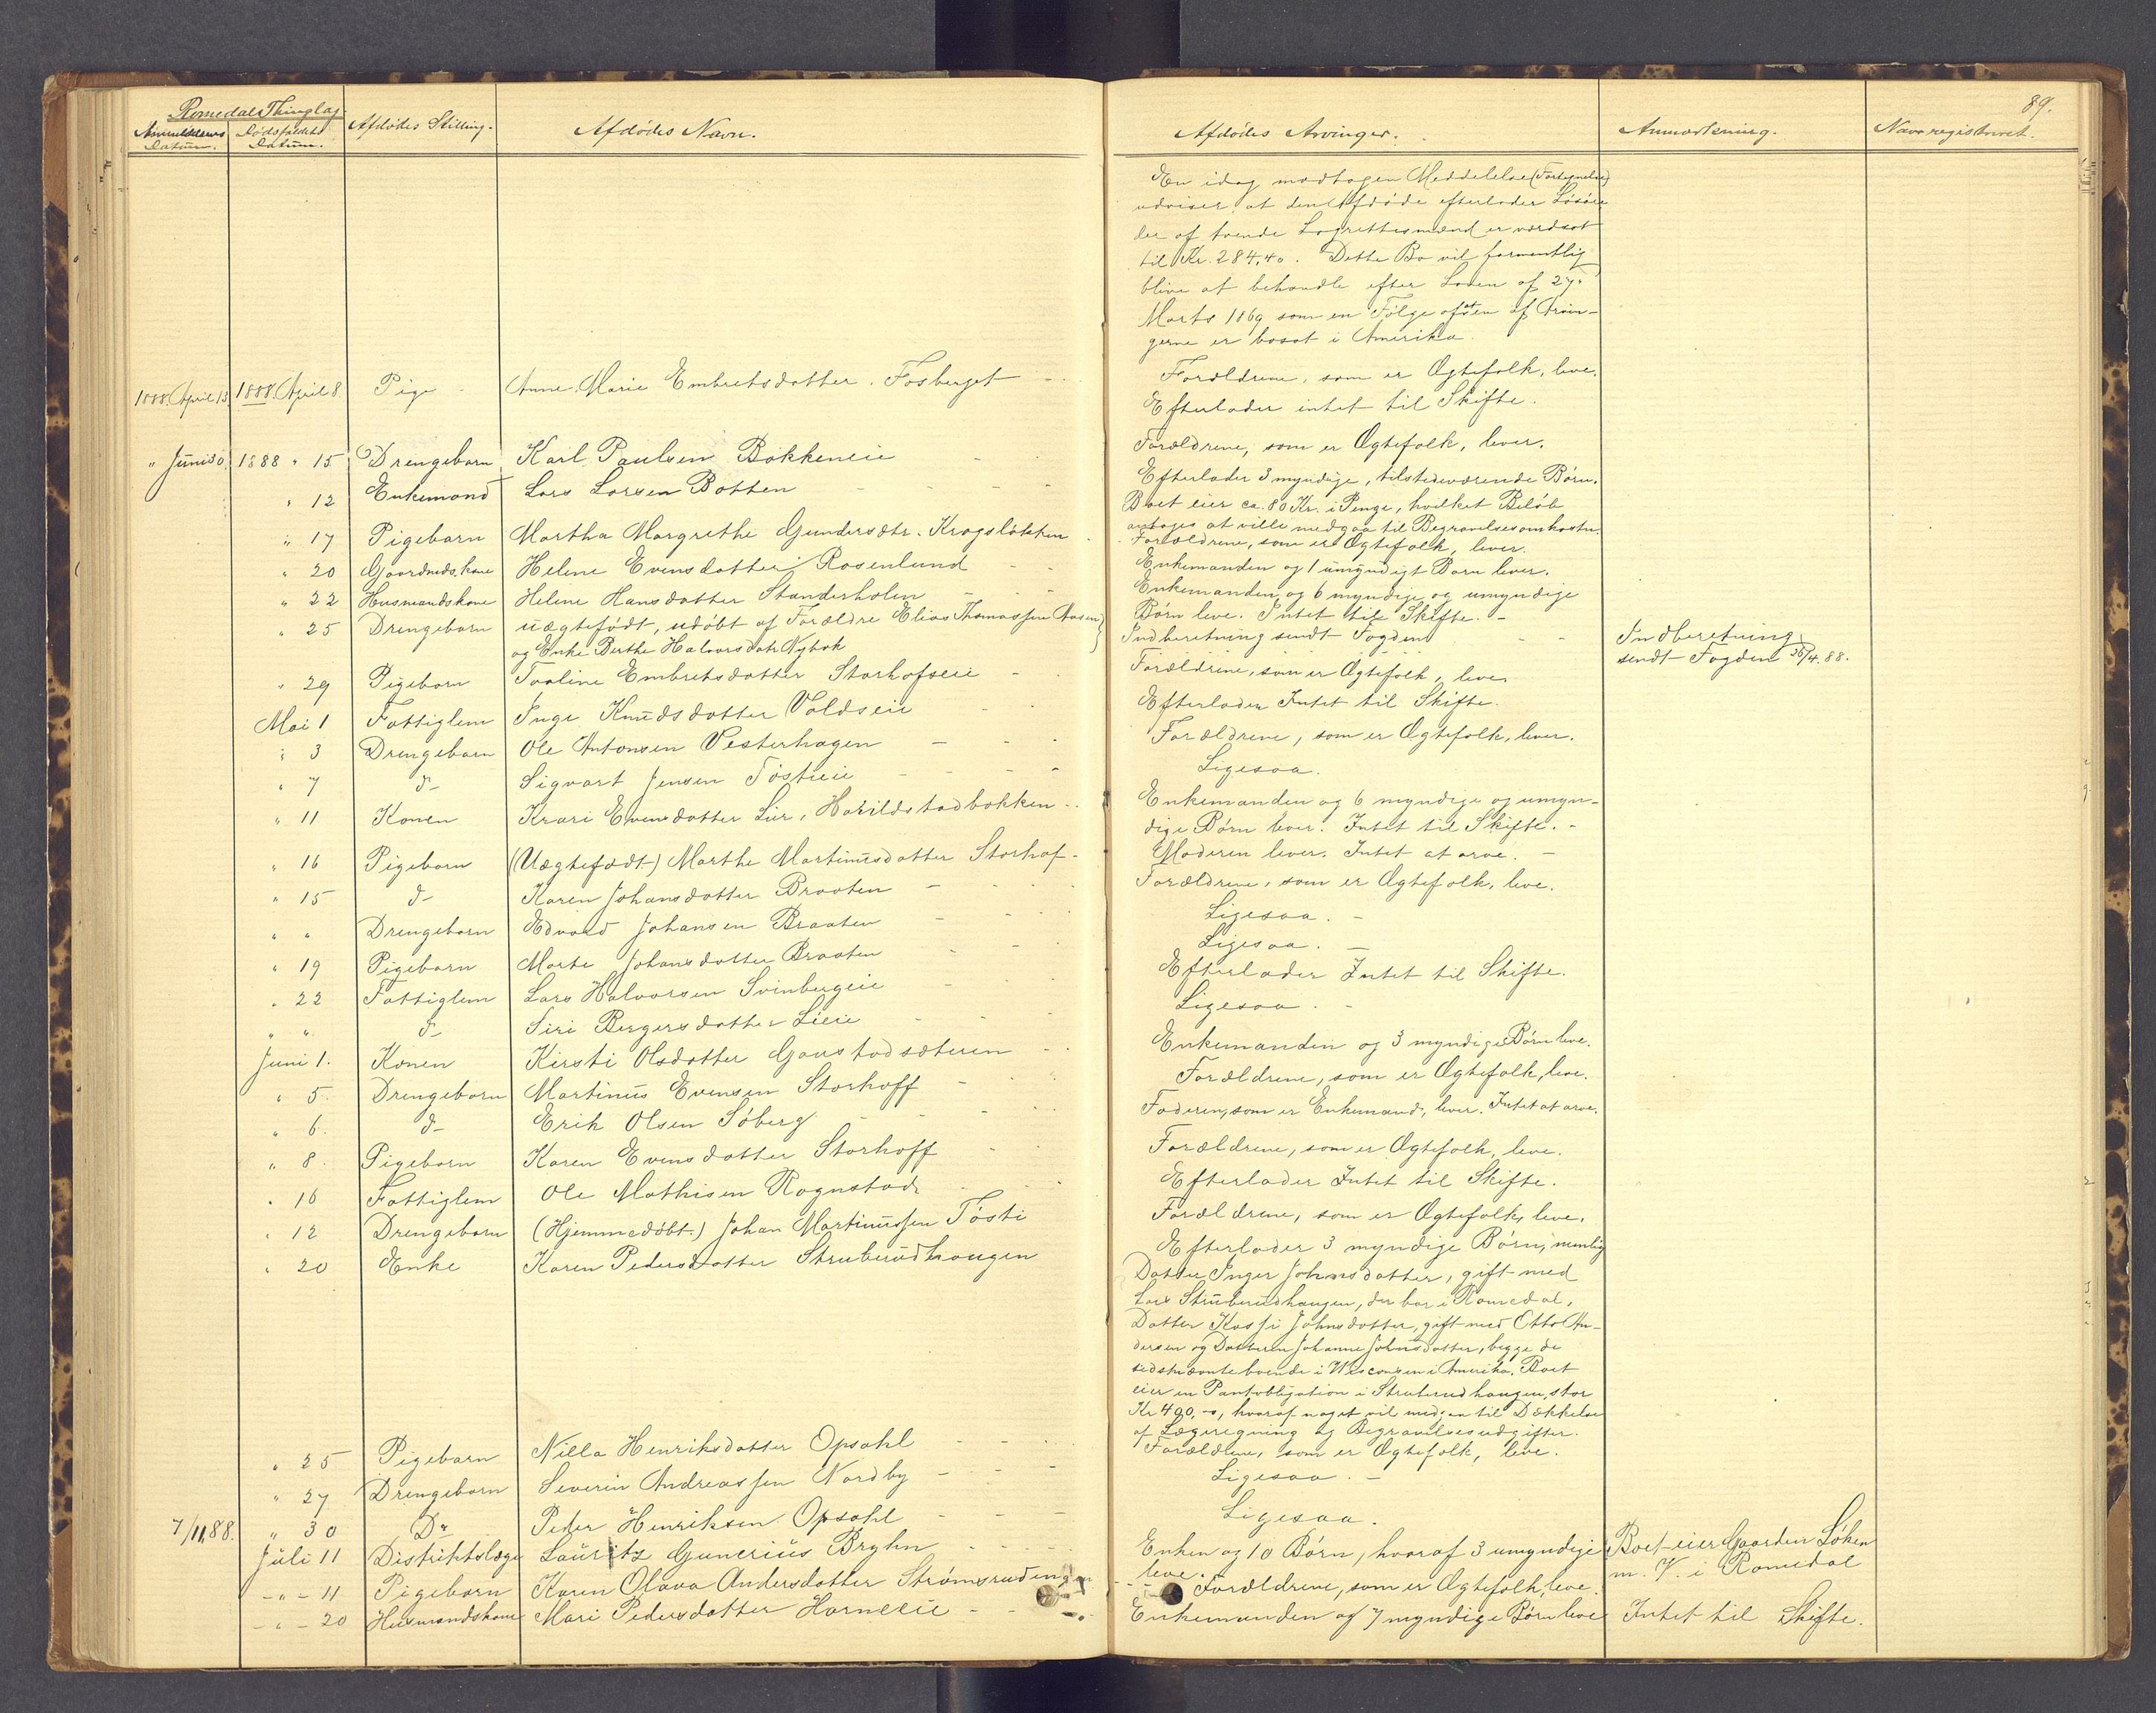 Romedals Thinglag.
89.
Anmeldelsens Datum. Dødsfaldets Datum. Afdødes Stilling. Afdødes Navn. Afdødes Arvinger. Anmærkning. Navnregistreret.
En idag modtagen Meddelelse (Fortegnelse)
udviser at den Afdøde efterlader Løsøre
der af tvende Lagrettesmænd er værdsat
til Kr. 284,40. Dette Bo vil formentlig
blive at behandle efter Loven af 27
Marts 1869 som en Følge af at en af Arvin-
gerne er bosat i Amerika.
1888 April 13 1888 April 8 Pige Anne Marie Embretsdatter Fosberget Forældrene, som er Ægtefolk, leve.
Efterlader intet til Skifte.
" Juni 30 1888 " 15 Drengebarn Karl Paulsen Bakkeneie Forældrene, som er Ægtefolk, lever.
" 12 Enkemand Lars Larsen Botten Efterlader 3 myndige, tilstedeværende Børn.
Boet eier ca. 80 Kr. i Penge, hvilket Beløb
antages at ville medgaa til Begravelsesomkostn.
" 17 Pigebarn Martha Margrethe Gundersdtr. Krogsløkken Forældrene, som er Ægtefolk, lever.
" 20 Gaardmds.kone Helene Evensdatter Rosenlund Enkemanden og 1 umyndigt Barn lever.
" 22 Husmandskone Helene Hansdatter Standerholen Enkemanden og 6 myndige og umyndige
Børn leve. Intet til Skifte.
" 25 Drengebarn uægtefødt, udøbt af Forældre Elias Thomassen Aasen
og Enke Berthe Halvorsdatr Nybak Indberetning sendt Fogden Indberetning
sendt Fogden 26/4.88.
" 29 Pigebarn Taaline Embretsdatter Storhofseie Forældrene, som er Ægtefolk, leve
Mai 1 Fattiglem Inge Knudsdatter Voldseie Efterlader Intet til Skifte.
" 3 Drengebarn Ole Antonsen Vesterhagen Forældrene, som er Ægtefolk, lever.
" 7 d- Sigvart Jensen Tøstieie Ligesaa.
" 11 Konen Krari Evensdatter Lier, Harildstadbakken Enkemanden og 6 myndige og umyn-
dige Børn lever. Intet til Skifte.
" 16 Pigebarn (Uægtefødt) Marthe Martinusdatter Storhof Moderen lever. Intet at arve.
" 15 d- Karen Johansdatter Braaten Forældrene, som er Ægtefolk, leve.
" " Drengebarn Edvard Johansen Braaten Ligesaa.
" 19 Pigebarn Marte Johansdatter Braaten Ligesaa.
" 22 Fattiglem Lars Halvorsen Svinbergeie Efterlader Intet til Skifte.
" " d- Siri Bergersdatter Lieie Ligesaa.
Juni 1. Konen Kirsti Olsdatter Gaustadsæteren Enkemanden og 3 myndige Børn leve.
" 5. Drengebarn Martinus Evensen Storhoff Forældrene, som er Ægtefolk, leve.
" 6. d- Erik Olsen Søberg Faderen, som er Enkemand, lever. Intet at arve.
" 8. Pigebarn Karen Evensdatter Storhoff Forældrene, som er Ægtefolk, leve.
" 16 Fattiglem Ole Mathisen Rognstad Efterlader Intet til Skifte.
" 12 Drengebarn (Hjemmedøbt.) Johan Martinussen Tøsti Forældrene, som er Ægtefolk, leve.
" 20 Enke Karen Pedersdatter Struberudhaugen Efterlader 3 myndige Børn, nemlig
Datter Inger Johnsdatter, gift med
Lars Struberudhaugen, der bor i Romedal,
Datter Kassi Johnsdatter, gift med Otto An-
dersen og Datteren Johanne Johnsdatter, begge de
sidstnævnte boende i Wisconsen i Amerika. Boet
eier en Pantobligation i Struberudhaugen, stor
Kr 400,-, hvoraf noget vil medgaa til Dækkelse
af Lægeregning og Begravelsesudgifter.
" 25 Pigebarn Nilla Henriksdatter Opsahl Forældrene, som er Ægtefolk, leve.
" 27 Drengebarn Severin Andreassen Nordby Ligesaa.
7/11.88. " 30 Do Peder Henriksen Opsahl Ligesaa.
Juli 11 Distriktslæge Lauritz Gunerius Bryhn Enken og 10 Børn, hvoraf 3 umyndige
leve. Boet eier Gaarden Løken
m. V. i Romedal
-"- 11 Pigebarn Karen Olava Andersdatter Strømsrudengen Forældrene, som er Ægtefolk, leve.
-"- 20 Husmandskone Mari Pedersdatter Horneeie Enkemanden og 7 myndige Børn leve Intet til Skifte.